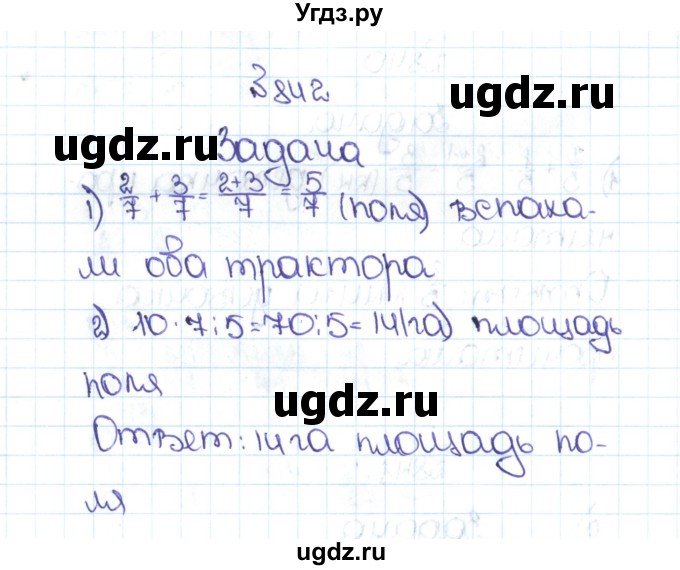 Угдз.ру
З 842
ugdz.ru
ugdz.ru
Задача
1) 2/7 + 3/7 = 2+3/7 = 5/7 (поля) вспаха-
ли оба трактора
2) 10·7:5=70:5=14(га) площадь
поля
ugdz.ru
ugdz.ru
Ответ: 14 га площадь по-
ля
ugdz.ru